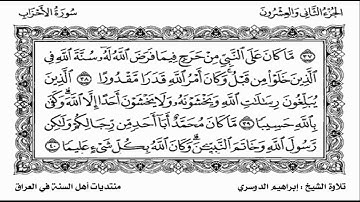 الجزء الثاني والعشرون
سورة الأحزاب
٣٧ مَّا كَانَ عَلَى ٱلنَّبِيِّ مِنْ حَرَجٍ فِيمَا فَرَضَ ٱللَّهُ لَهُۥ سُنَّةَ ٱللَّهِ فِي
ٱلَّذِينَ خَلَوْا۟ مِن قَبْلُ وَكَانَ أَمْرُ ٱللَّهِ قَدَرًا مَّقْدُورًا ٣٨ ٱلَّذِينَ
يُبَلِّغُونَ رِسَٰلَٰتِ ٱللَّهِ وَيَخْشَوْنَهُۥ وَلَا يَخْشَوْنَ أَحَدًا إِلَّا ٱللَّهَ وَكَفَىٰ
بِٱللَّهِ حَسِيبًا ٣٩ مَّا كَانَ مُحَمَّدٌ أَبَآ أَحَدٍ مِّن رِّجَالِكُمْ وَلَٰكِن
رَّسُولَ ٱللَّهِ وَخَاتَمَ ٱلنَّبِيِّـۧنَ وَكَانَ ٱللَّهُ بِكُلِّ شَىْءٍ عَلِيمًا ٤٠
تلاوة الشيخ : إبراهيم الدوسري
منتديات أهل السنة في العراق